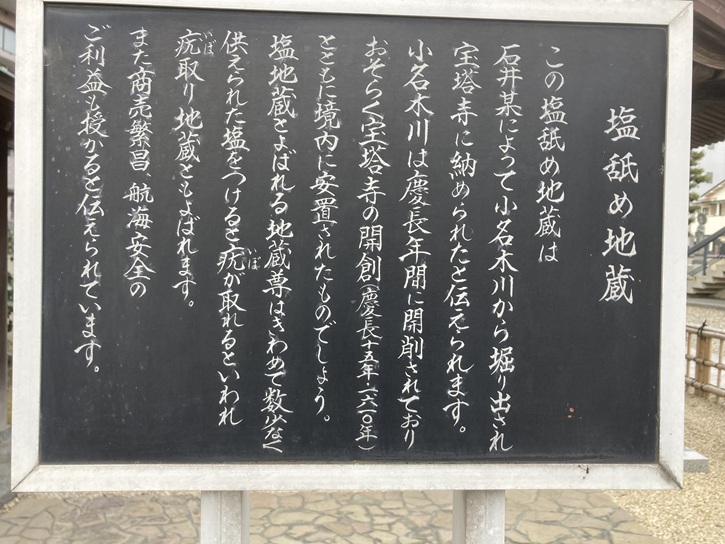 塩舐め地蔵
この塩舐め地蔵は
石井某によって小名木川から堀り出され
宝塔寺に納められたと伝えられます。
小名木川は慶長年間に開削されており
おそらく宝塔寺の開創(慶長十五年・一六一〇年)
とともに境内に安置されたものでしょう。
塩地蔵とよばれる地蔵尊はきわめて数少なく
供えられた塩をつけると疣が取れるといわれ
いぼ
疣取り地蔵ともよばれます。
いぼ
また商売繁昌、航海安全の
ご利益も授かると伝えられています。